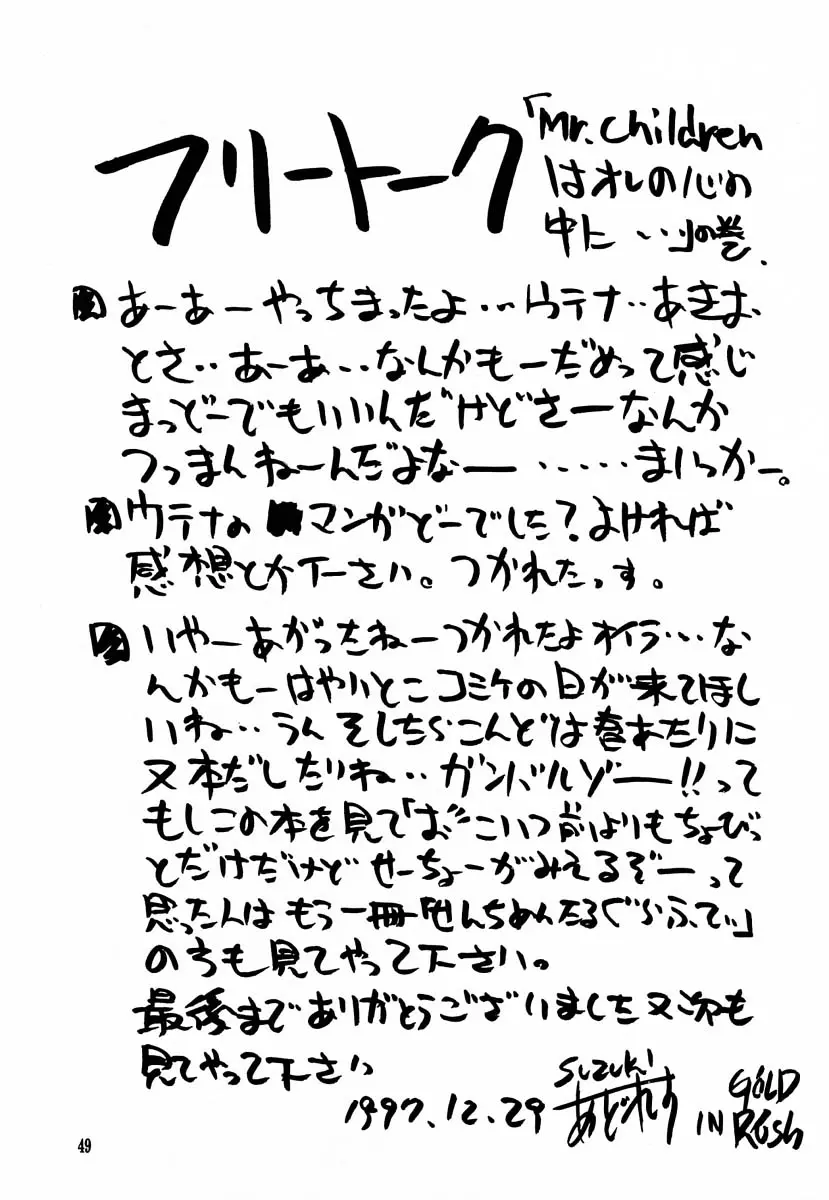 フリートーク
「Mr.Children
はオレの心の
中に・・・」の巻.
あーあーやっちまったよ・・・ウテナ・・あきお
とさ・・あーあ・・・なんかもーだめって感じ
まっどーでもいいんだけどさーなんか
つっまんねーんだよなー・・・・・まいっかー。
ウテナの マンガどーでした?よければ
感想とか下さい。つかれたっす。
いやーあがったねーつかれたよオイラ・・・な
んかもーはやいとこコミケの日が来てほし
いね・・うん そしたらこんどは春あたりに
又本だしたいね・・ガンバルゾー!!って
もしこの本を見て「お゛こいつ前よりもちょびっ
とだけだけどせーちょーがみえるぞーって
思った人はもう一冊「せんちめんたるぐらふてぃ」
のうも見てやって下さい。
最後までありがとうございました又次も
見てやって下さい
1997.12.29
SUZUKI
あどれす
IN
GOLD
RUSh
49